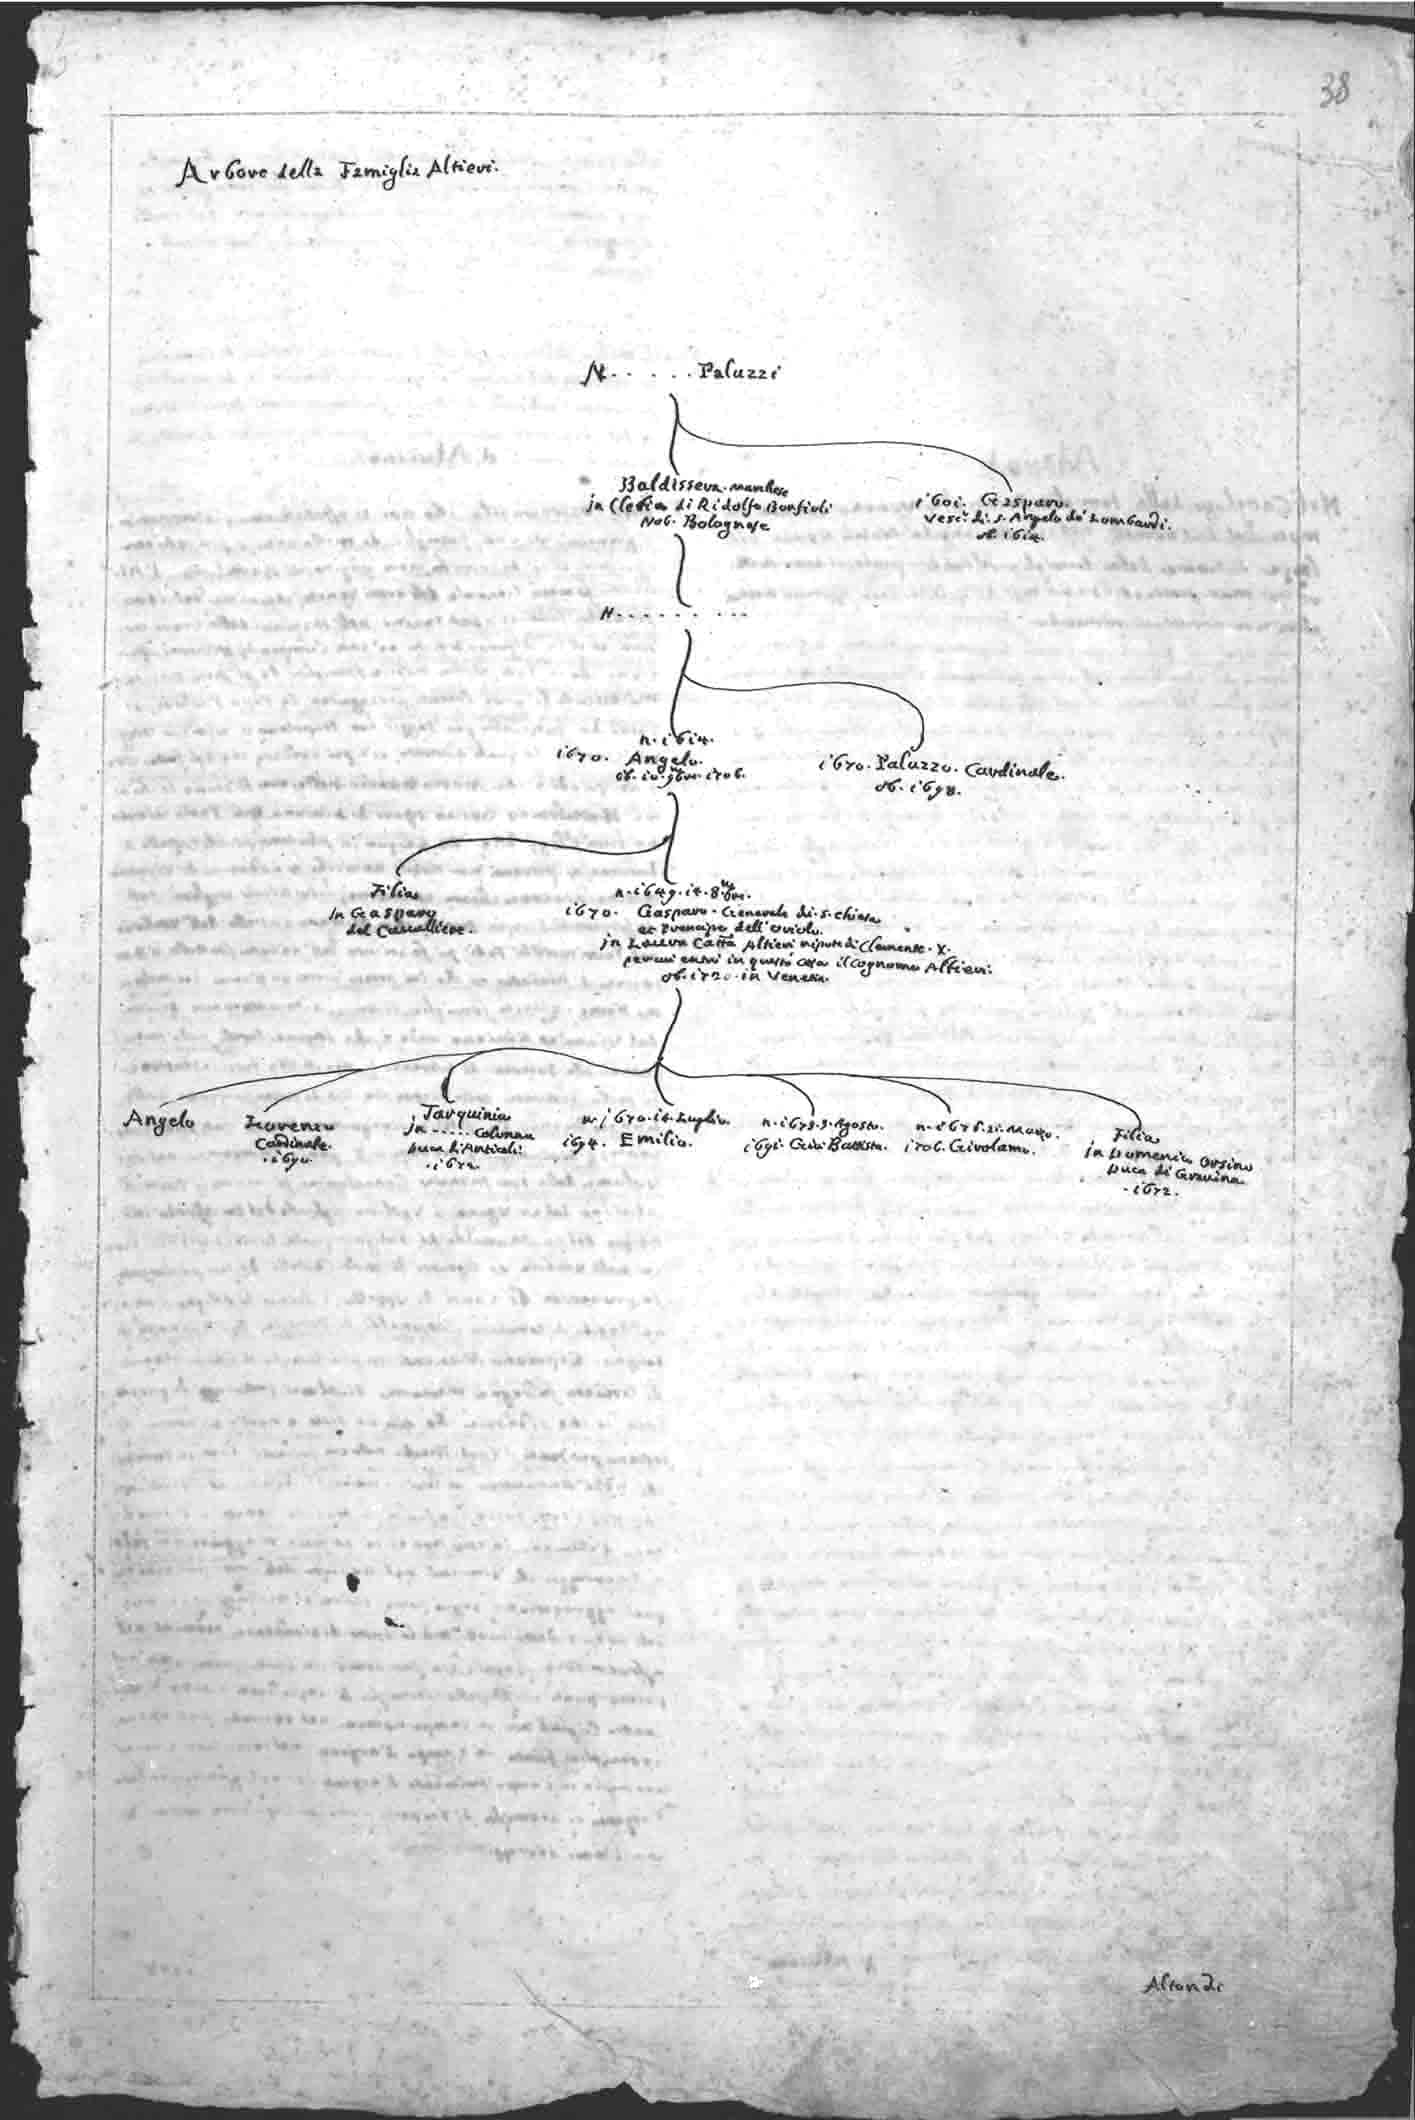 38
Arbore della Famiglia Altieri.
N. . . . . . Paluzzi
Baldissera. marchese
in Clebia di Ridolfo Bonfioli
Nob. Bolognese
1601. Gasparo.
Vesc: di. S. Angelo de Lombardi.
ob. 1614.
N. . . . . . . . .
n. 1614.
1670. Angelo.
ob. 10. 9bre. 1706.
1670. Paluzzo. Cardinale.
ob. 1698.
Filia
in Gasparo
del Cavalliere.
n. 1649. 14. 8bre.
1670. Gasparo. Generale di. S. Chiesa
et Prencipe dell'
in Laura Catta Altieri nipote di Clemente. X.
per cui entrò in questa casa il cognome Altieri.
ob. 1720. in Venetia.
Angelo
Lorenzo
Cardinale.
. 1690.
Tarquinia
in . . . . . . Colonna
Duca d'Anticoli.
. 1672.
n. 1670. 14. Luglio.
1694. Emilio.
n. 1673. 3. Agosto.
1691. Gio: Battista.
n. 1676. 21. Marzo.
1706. Girolamo.
Filia
in Domenico Orsino
Duca di Gravina
. 1672.
Altondi